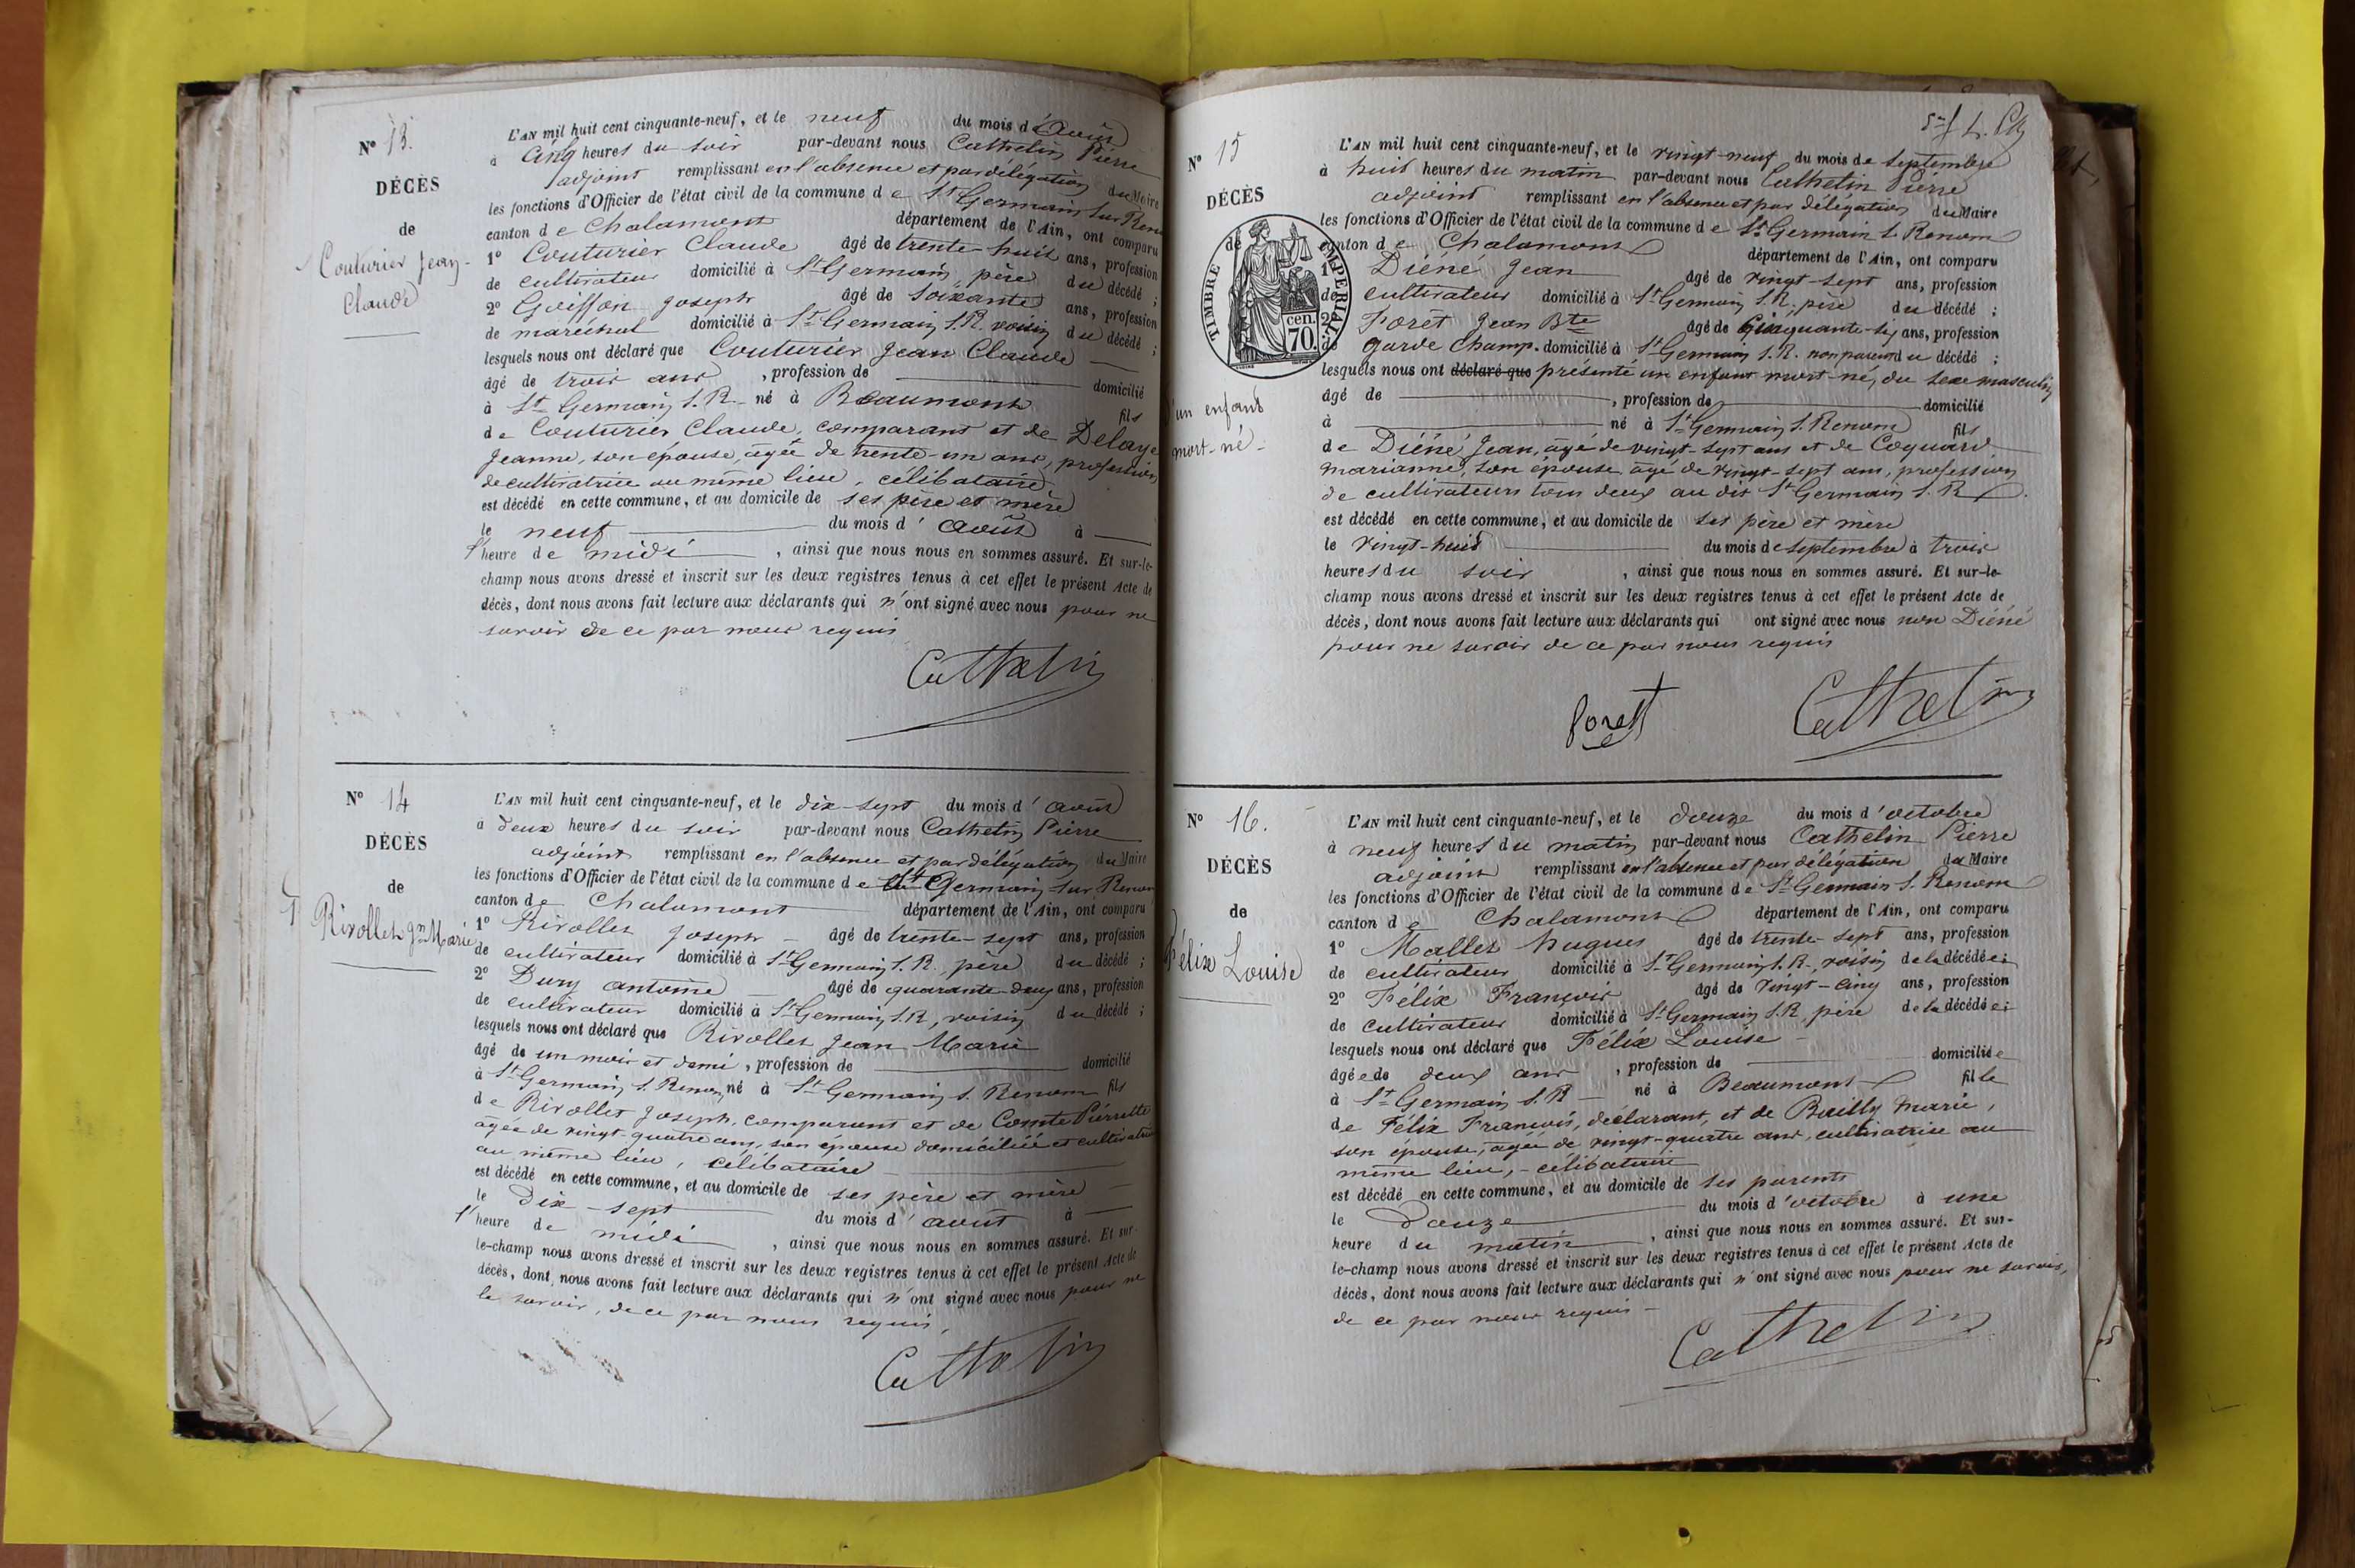 N° 13.
DÉCÈS
de
Couturier Jean-
Claude
L'AN mil huit cent cinquante-neuf, et le neuf du mois d'Août
à Cinq heures du soir par-devant nous Cathelin Pierre
adjoint remplissant en l'absence et par délégation du Maire
les fonctions d'Officier de l'état civil de la commune de St Germain sur Renom
canton de Chalamont département de l'Ain, ont comparu
1° Couturier Claude âgé de trente-huit ans, profession
de cultivateur domicilié à St Germain, père du décédé ;
2° Goiffon Joseph âgé de soixante ans, profession
de maréchal domicilié à St Germain S. R. voisin du décédé ;
lesquels nous ont déclaré que Couturier Jean Claude
âgé de trois ans , profession de domicilié
à St Germain S. R. né à Beaumont fils
de Couturier Claude, comparant et de Delaye
Jeanne, son épouse, âgée de trente-un ans, profession
de cultivatrice au même lieu, célibataire
est décédé en cette commune, et au domicile de ses père et mère
le neuf du mois d'Août à
l'heure de midi , ainsi que nous nous en sommes assuré. Et sur-le-
champ nous avons dressé et inscrit sur les deux registres tenus à cet effet le présent Acte de
décès, dont nous avons fait lecture aux déclarants qui n'ont signé avec nous pour ne
savoir de ce par nous requis
Cathelin
N° 14
DÉCÈS
de
Rivollet Jn Marie
L'AN mil huit cent cinquante-neuf, et le dix-sept du mois d'août
à deux heures du soir par-devant nous Cathelin Pierre
adjoint remplissant en l'absence et par délégation du Maire
les fonctions d'Officier de l'état civil de la commune de St Germain sur Renom
canton de Chalamont département de l'Ain, ont comparu
1° Rivollet Joseph âgé de trente-sept ans, profession
de cultivateur domicilié à St Germain S. R., père du décédé ;
2° Dury antoine âgé de quarante-deux ans, profession
de cultivateur domicilié à St Germain S. R, voisin du décédé ;
lesquels nous ont déclaré que Rivollet Jean Marie
âgé de un mois et demi , profession de domicilié
à St Germain S. Renom, né à St Germain S. Renom fils
de Rivollet Joseph, comparant et de Comte Pierrette
âgée de vingt-quatre ans, son épouse domiciliée et cultivatrice
au même lieu, célibataire
est décédé en cette commune, et au domicile de ses père et mère
le dix-sept du mois d'août à
l'heure de midi , ainsi que nous nous en sommes assuré. Et sur-
le-champ nous avons dressé et inscrit sur les deux registres tenus à cet effet le présent Acte de
décès, dont nous avons fait lecture aux déclarants qui n'ont signé avec nous pour ne
le savoir, de ce par nous requis,
Cathelin
N° 15
DÉCÈS
de
TIMBRE IMPERIAL
70. cen.
d'un enfant
mort-né
L'AN mil huit cent cinquante-neuf, et le vingt-neuf du mois de septembre
à huit heures du matin par-devant nous Cathelin Pierre
adjoint remplissant en l'absence et par délégation du Maire
les fonctions d'Officier de l'état civil de la commune de St Germain S. Renom
canton de Chalamont département de l'Ain, ont comparu
1° Diéné Jean âgé de vingt-sept ans, profession
de cultivateur domicilié à St Germain S. R, père du décédé ;
2° Forêt Jean Bte âgé de Cinquante-six ans, profession
de garde champ. domicilié à St Germain S. R. non parent du décédé ;
lesquels nous ont déclaré que présenté un enfant mort-né, du sexe masculin
âgé de , profession de domicilié
à né à St Germain S. Renom fils
de Diéné Jean, âgé de vingt-sept ans et de Coquard
Marianne, son épouse âgé de vingt-sept ans, profession
de cultivateurs tous deux au dit St Germain S. R.
est décédé en cette commune, et au domicile de ses père et mère
le vingt-huit du mois de septembre à trois
heures du soir , ainsi que nous nous en sommes assuré. Et sur-le-
champ nous avons dressé et inscrit sur les deux registres tenus à cet effet le présent Acte de
décès, dont nous avons fait lecture aux déclarants qui ont signé avec nous non Diéné
pour ne savoir de ce par nous requis
forest Cathelin
N° 16.
DÉCÈS
de
Félix Louise
L'AN mil huit cent cinquante-neuf, et le douze du mois d'octobre
à neuf heures du matin par-devant nous Cathelin Pierre
adjoint remplissant en l'absence et par délégation du Maire
les fonctions d'Officier de l'état civil de la commune de St Germain S. Renom
canton de Chalamont département de l'Ain, ont comparu
1° Mallet hugues âgé de trente-sept ans, profession
de cultivateur domicilié à St Germain S. R., voisin de la décédée ;
2° Félix François âgé de vingt-cinq ans, profession
de cultivateur domicilié à St Germain S. R, père de la décédée ;
lesquels nous ont déclaré que Félix Louise
âgée de deux ans , profession de domiciliée
à St Germain S. R né à Beaumont fille
de Félix François, déclarant, et de Bailly Marie,
son épouse, âgée de vingt-quatre ans, cultivatrice au
même lieu, célibataire
est décédé en cette commune, et au domicile de ses parents
le Douze du mois d'octobre à une
heure du matin , ainsi que nous nous en sommes assuré. Et sur-
le-champ nous avons dressé et inscrit sur les deux registres tenus à cet effet le présent Acte de
décès, dont nous avons fait lecture aux déclarants qui n'ont signé avec nous pour ne savoir,
de ce par nous requis
Cathelin